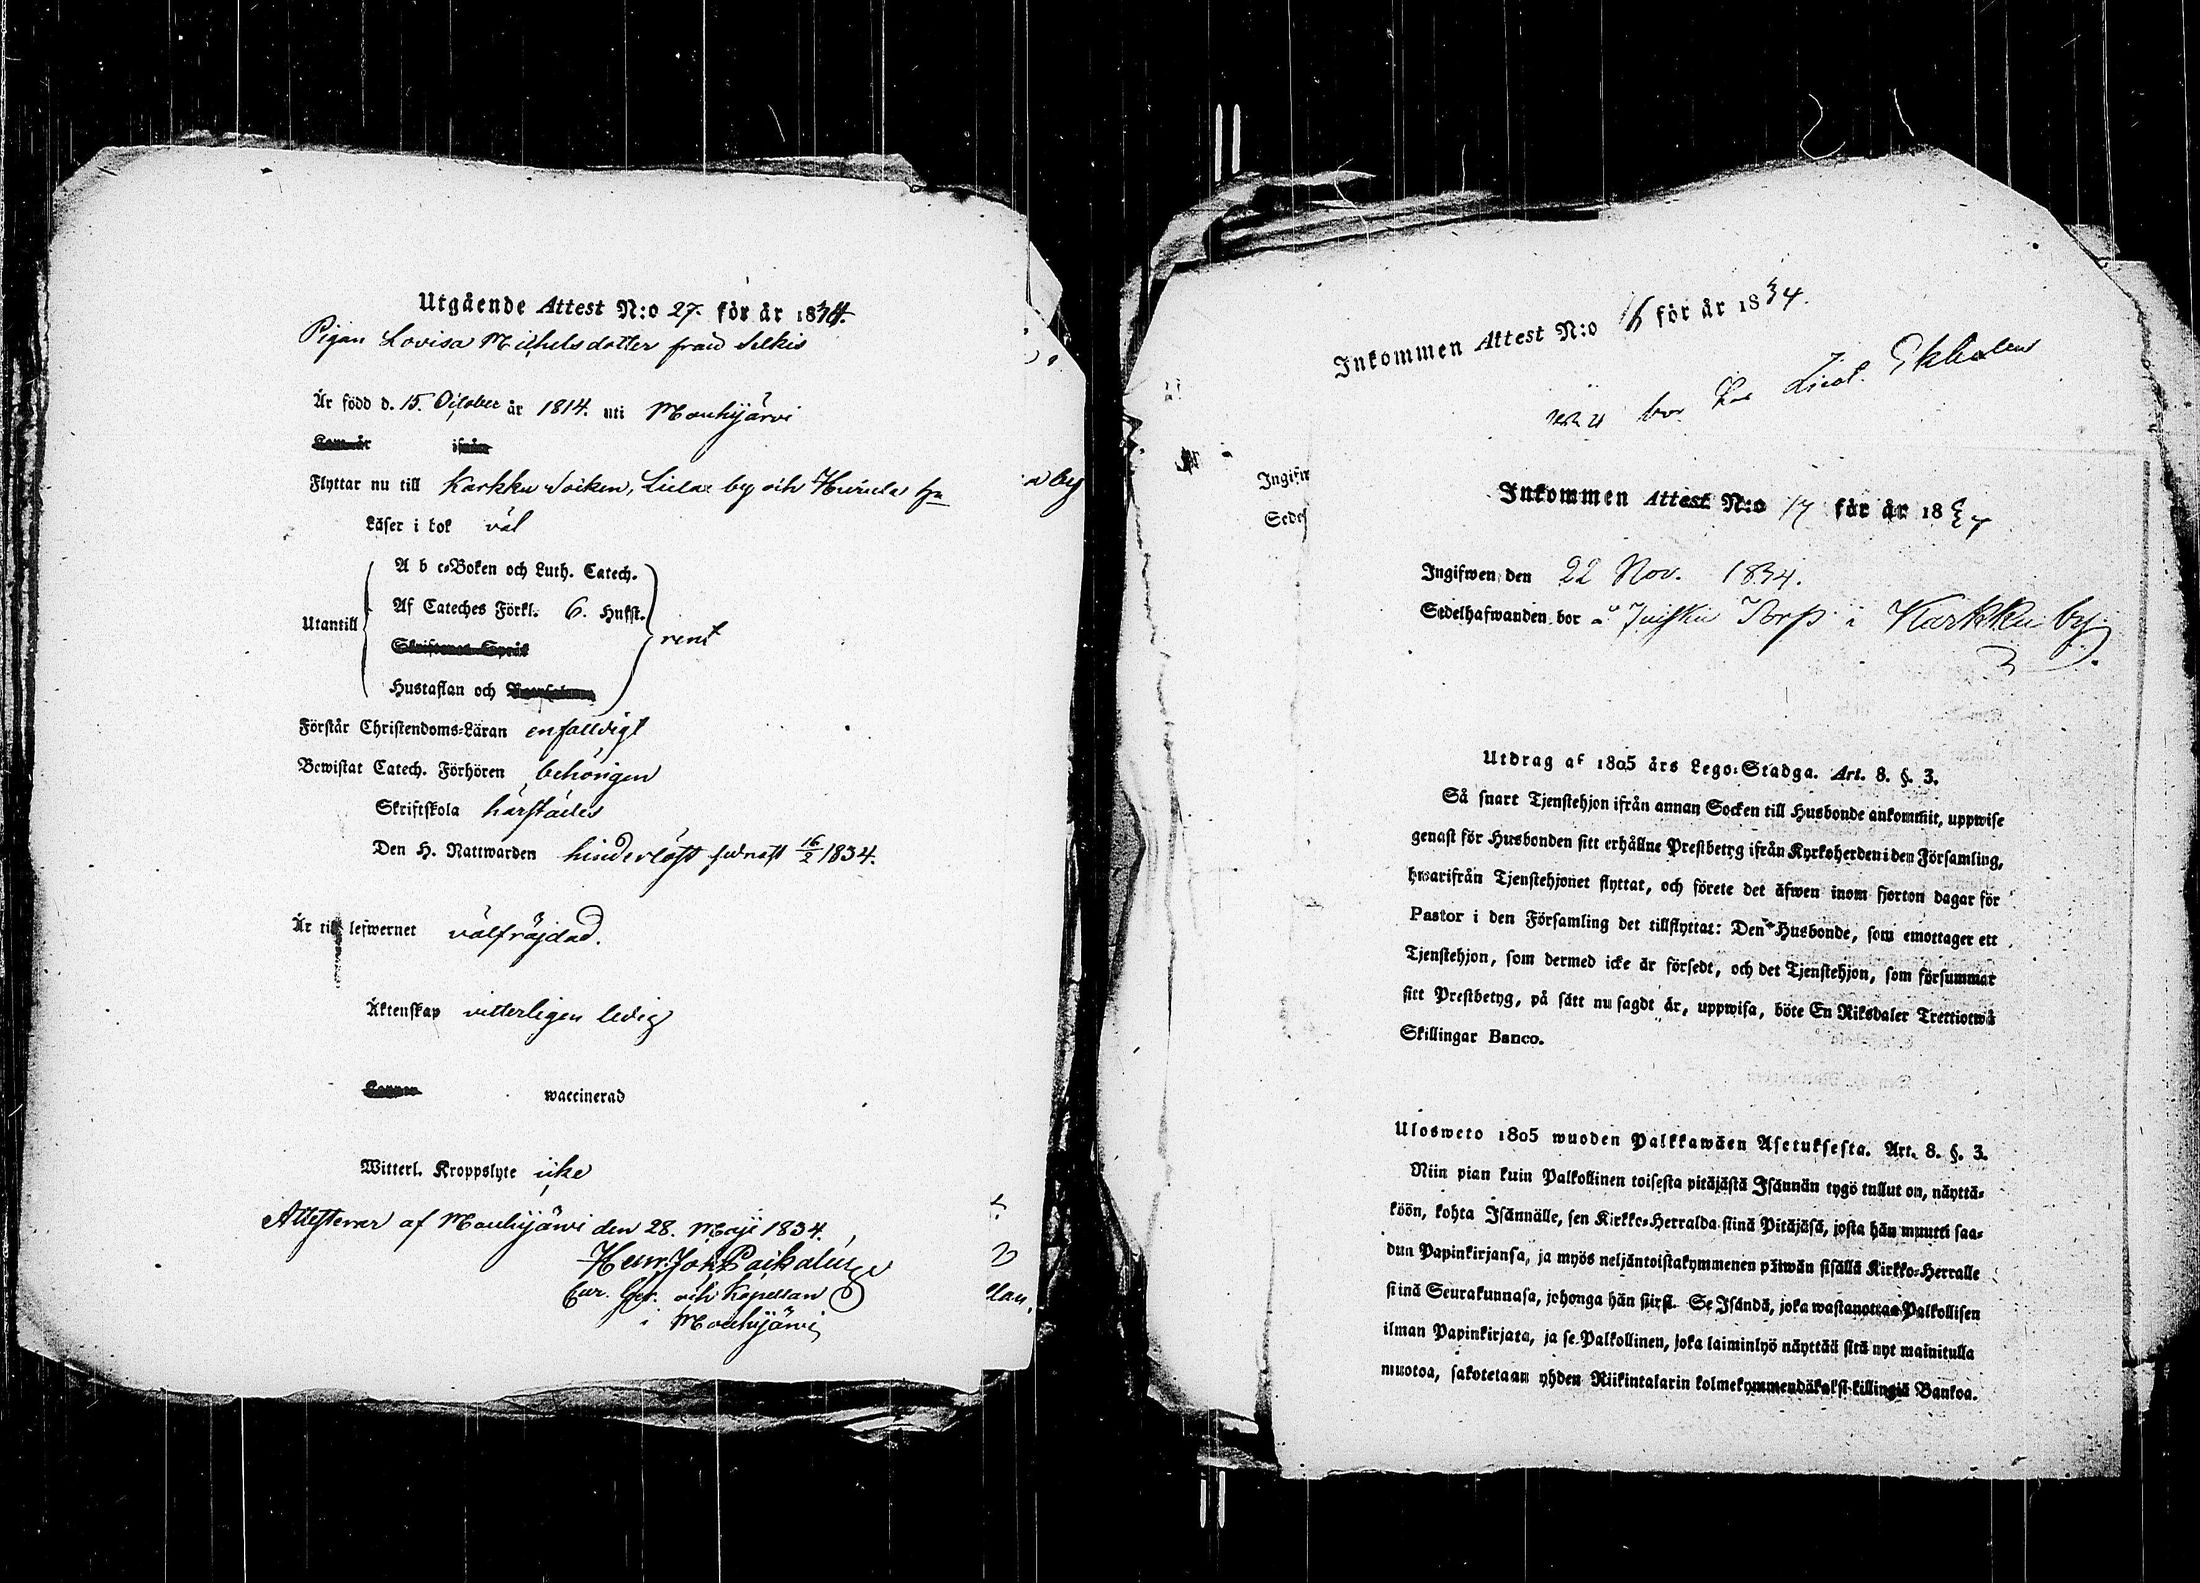 Utgående Attest N:o 27. för år 1834.
Pigan Lovisa Michelsdotter från Selkis
Är född d. 15. October år 1814. uti Mouhijärvi
Flyttar nu till Karkku Socken, Lielax by och Huruda hn
Läser i bok väl
A b c-Boken och Luth. Catech.
Af Cateches Förkl. 6. Hufst.
Utantill rent
Skriftenes Språk
Hustaflan och
Förstår Christendoms-Läran enfalldigt
Bewistat Catech. Förhören behörigen
Skriftskola härstädes
Den H. Nattwarden hinderlöst sednast 16/2 1834.
Är till lefwernet välfräjdad.
Äktenskap vitterligen ledig
waccinerad
Witterl. Kroppslyte icke
Attesterar af Mouhijärvi den 28. Maji 1834.
Henr. Joh. Paikalén
Cur. Ger. och Kapellan
i Mouhijärvi
a by
llan.
Inkommen Attest N:o 16 för år 1834.
nu bor hos Lieut. Ekholm
Ingifw
Sedel
Inkommen Attest N:o 17 för år 1834
Ingifwen den 22 Nov. 1834.
Sedelhafwanden bor å Torp i Karkku by.
Utdrag af 1805 års Lego-Stadga. Art. 8. §. 3.
Så snart Tjenstehjon ifrån annan Socken till Husbonde ankommit, uppwise
genast för Husbonden sitt erhållne Prestbetyg ifrån Kyrkoherden i den Församling,
hwarifrån Tjenstehjonet flyttat, och förete det äfwen inom fjorton dagar för
Pastor i den Församling det tillflyttat: Den Husbonde, som emottager ett
Tjenstehjon, som dermed icke är försedt, och det Tjenstehjon, som försummar
sitt Prestbetyg, på sätt nu sagdt är, uppwisa, böte En Riksdaler Trettiotwå
Skillingar Banco.
Ulosweto 1805 wuoden Palkkawäen Asetuksesta. Art. 8. §. 3.
Niin pian kuin Palkollinen toisesta pitäjästä Isännän tygö tullut on, näyttä-
köön, kohta Isännälle, sen Kirkko-Herralda siinä Pitäjäsä, josta hän muutti saa-
dun Papinkirjansa, ja myös neljäntoistakymmenen päiwän sisällä Kirkko-Herralle
siinä Seurakunnasa, johonga hän siirsi. Se Isändä, joka wastanottaa Palkollisen
ilman Papinkirjata, ja se Palkollinen, joka laiminlyö näyttää sitä nyt mainitulla
muotoa, sakotetaan yhden Riikintalarin kolmekymmendäkaksi killingiä Bankoa.